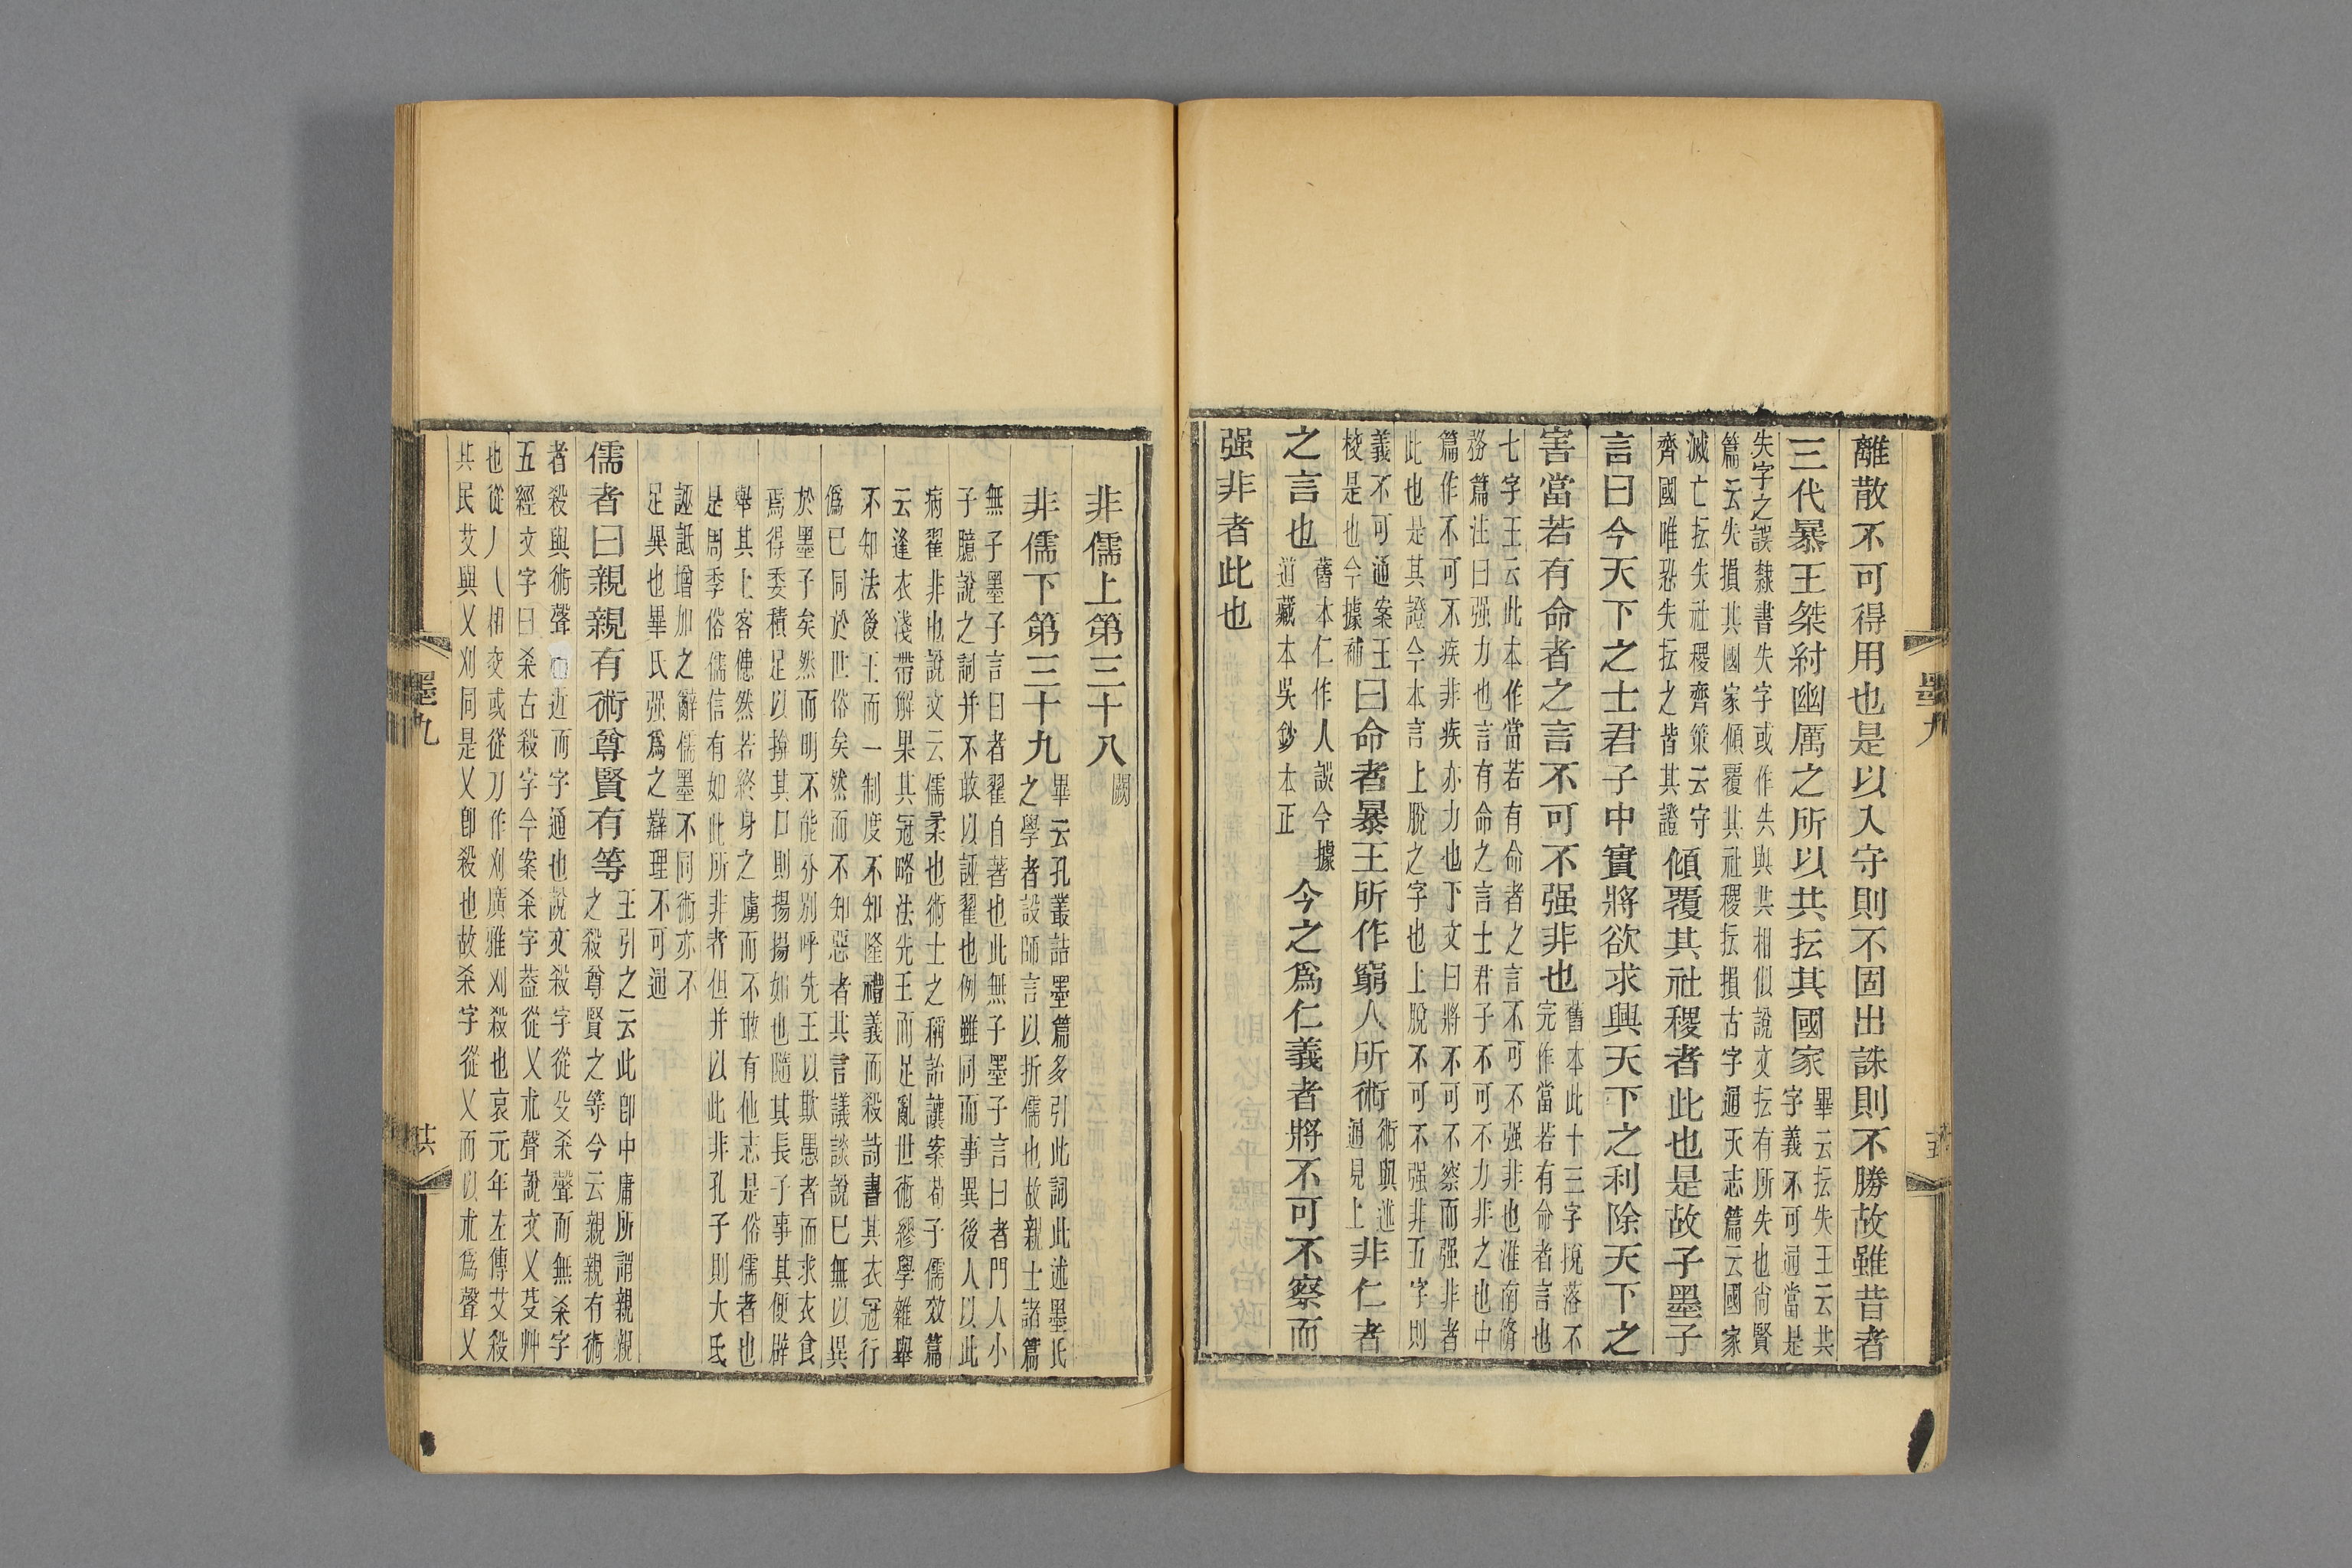 離散不可得用也是以入守則不固出誅則不勝故雖昔者
三代暴王桀紂幽厲之所以共抎其國家
畢云抎失王云共
字義不可通當是
失字之誤隸書失字或作失與共相似說文抎有所失也尚賢
篇云失損其國家傾覆其社稷抎損古字通天志篇云國家
滅亡抎失社稷齊策云守
齊國唯恐失抎之皆其證
傾覆其社稷者此也是故子墨子
言曰今天下之士君子中實將欲求興天下之利除天下之
害當若有命者之言不可不强非也
舊本此十三字挩落不
完作當若有命者言也
七字王云此本作當若有命者之言不可不强非也淮南脩
務篇注曰强力也言有命之言士君子不可不力非之也中
篇作不可不疾非疾亦力也下文曰將不可不察而强非者
此也是其證今本言上脫之字也上脫不可不强非五字則
義不可通案王
校是也今據補
曰命者暴王所作窮人所術
術與述
通見上
非仁者
之言也
舊本仁作人誤今據
道藏本吳鈔本正
今之爲仁義者將不可不察而
强非者此也
墨九
非儒上第三十八
闕
非儒下第三十九
畢云孔叢詰墨篇多引此詞此述墨氏
之學者設師言以折儒也故親士諸篇
無子墨子言曰者翟自著也此無子墨子言曰者門人小
子臆說之詞并不敢以誣翟也例雖同而事異後人以此
病翟非也說文云儒柔也術士之稱詒讓案荀子儒效篇
云逢衣淺帶解果其冠略法先王而足亂世術繆學雜舉
不知法後王而一制度不知隆禮義而殺詩書其衣冠行
僞已同於世俗矣然而不知惡者其言議談說已無以異
於墨子矣然而明不能分別呼先王以欺愚者而求衣食
焉得委積足以揜其口則揚揚如也隨其長子事其便辟
舉其上客僡然若終身之虜而不敢有他志是俗儒者也
是周季俗儒信有如此所非者但并以此非孔子則大氐
誣詆增加之辭儒墨不同術亦不
足異也畢氏强爲之辯理不可通
儒者曰親親有術尊賢有等
王引之云此卽中庸所謂親親
之殺尊賢之等今云親親有術
者殺與術聲近而字通也說文殺字從殳杀聲而無杀字
五經文字曰杀古殺字今案杀字葢從乂朮聲說文乂芟艸
也從丿乀相交或從刀作刈廣雅刈殺也哀元年左傳艾殺
其民艾與乂刈同是乂卽殺也故杀字從乂而以朮爲聲乂
墨九
共